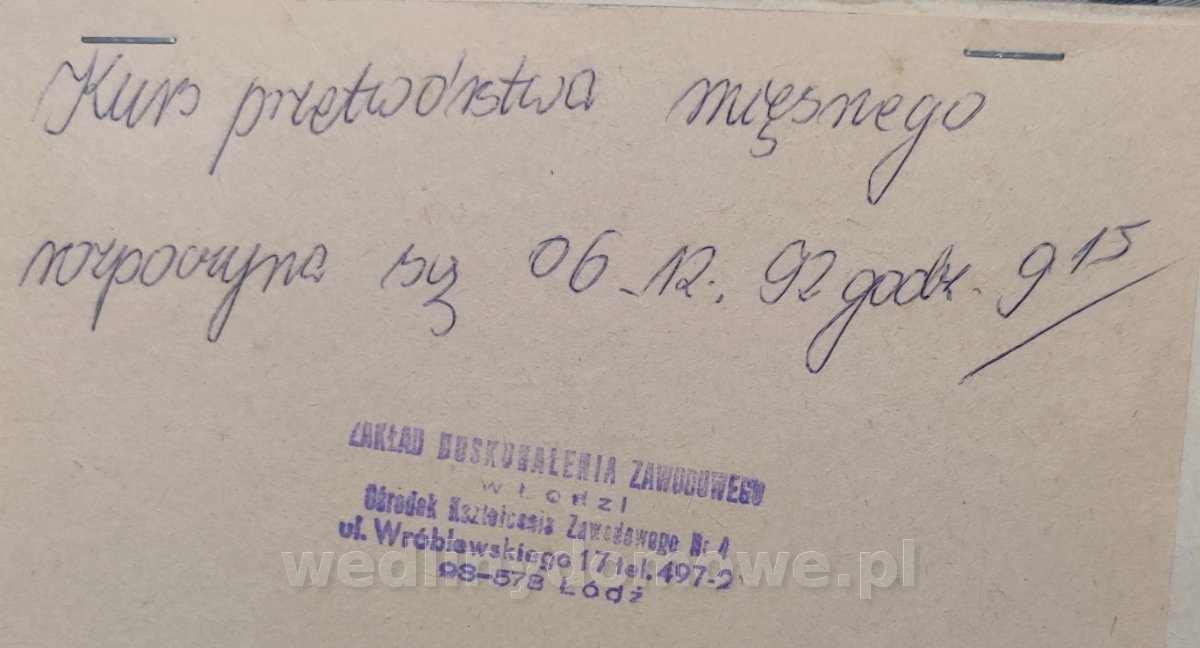 Kurs przetwórstwa mięsnego
rozpoczyna się 06.12.92 godz. 9 15
ZAKŁAD DOSKONALENIA ZAWODOWEGO
w Łodzi
Ośrodek Kształcenia Zawodowego Nr 4
ul. Wróblewskiego 17 tel. 497-2
93-578 Łódź
wedlinydomowe.pl